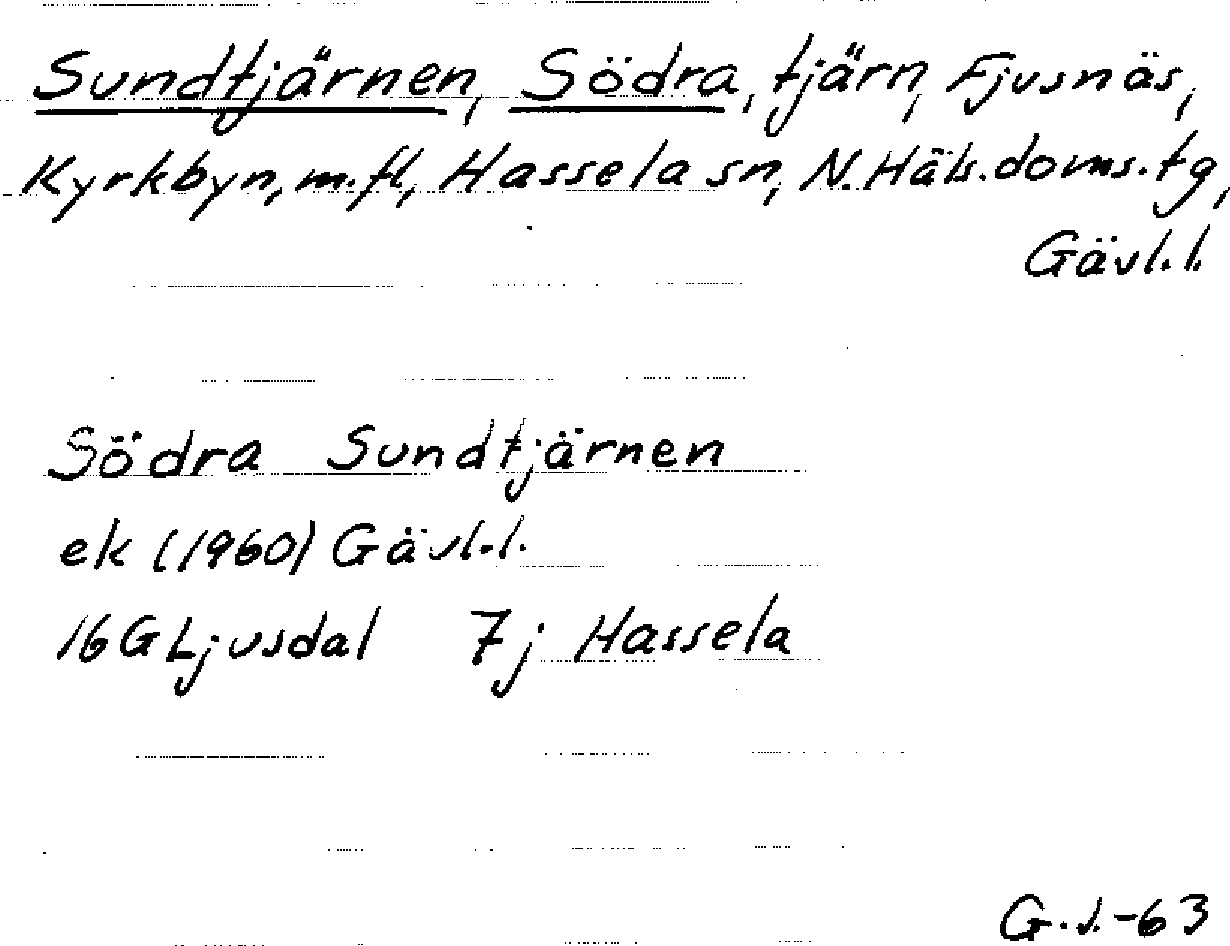 Sundtjärnen, Södra, tjärn, Fjusnäs,
Kyrkbyn, m.fl., Hassela sn, N. Häls. doms. tg,
Gävl.l.
Södra Sundtjärnen
ek (1960) Gävl.l.
16G Ljusdal 7j Hassela
G.J.-63